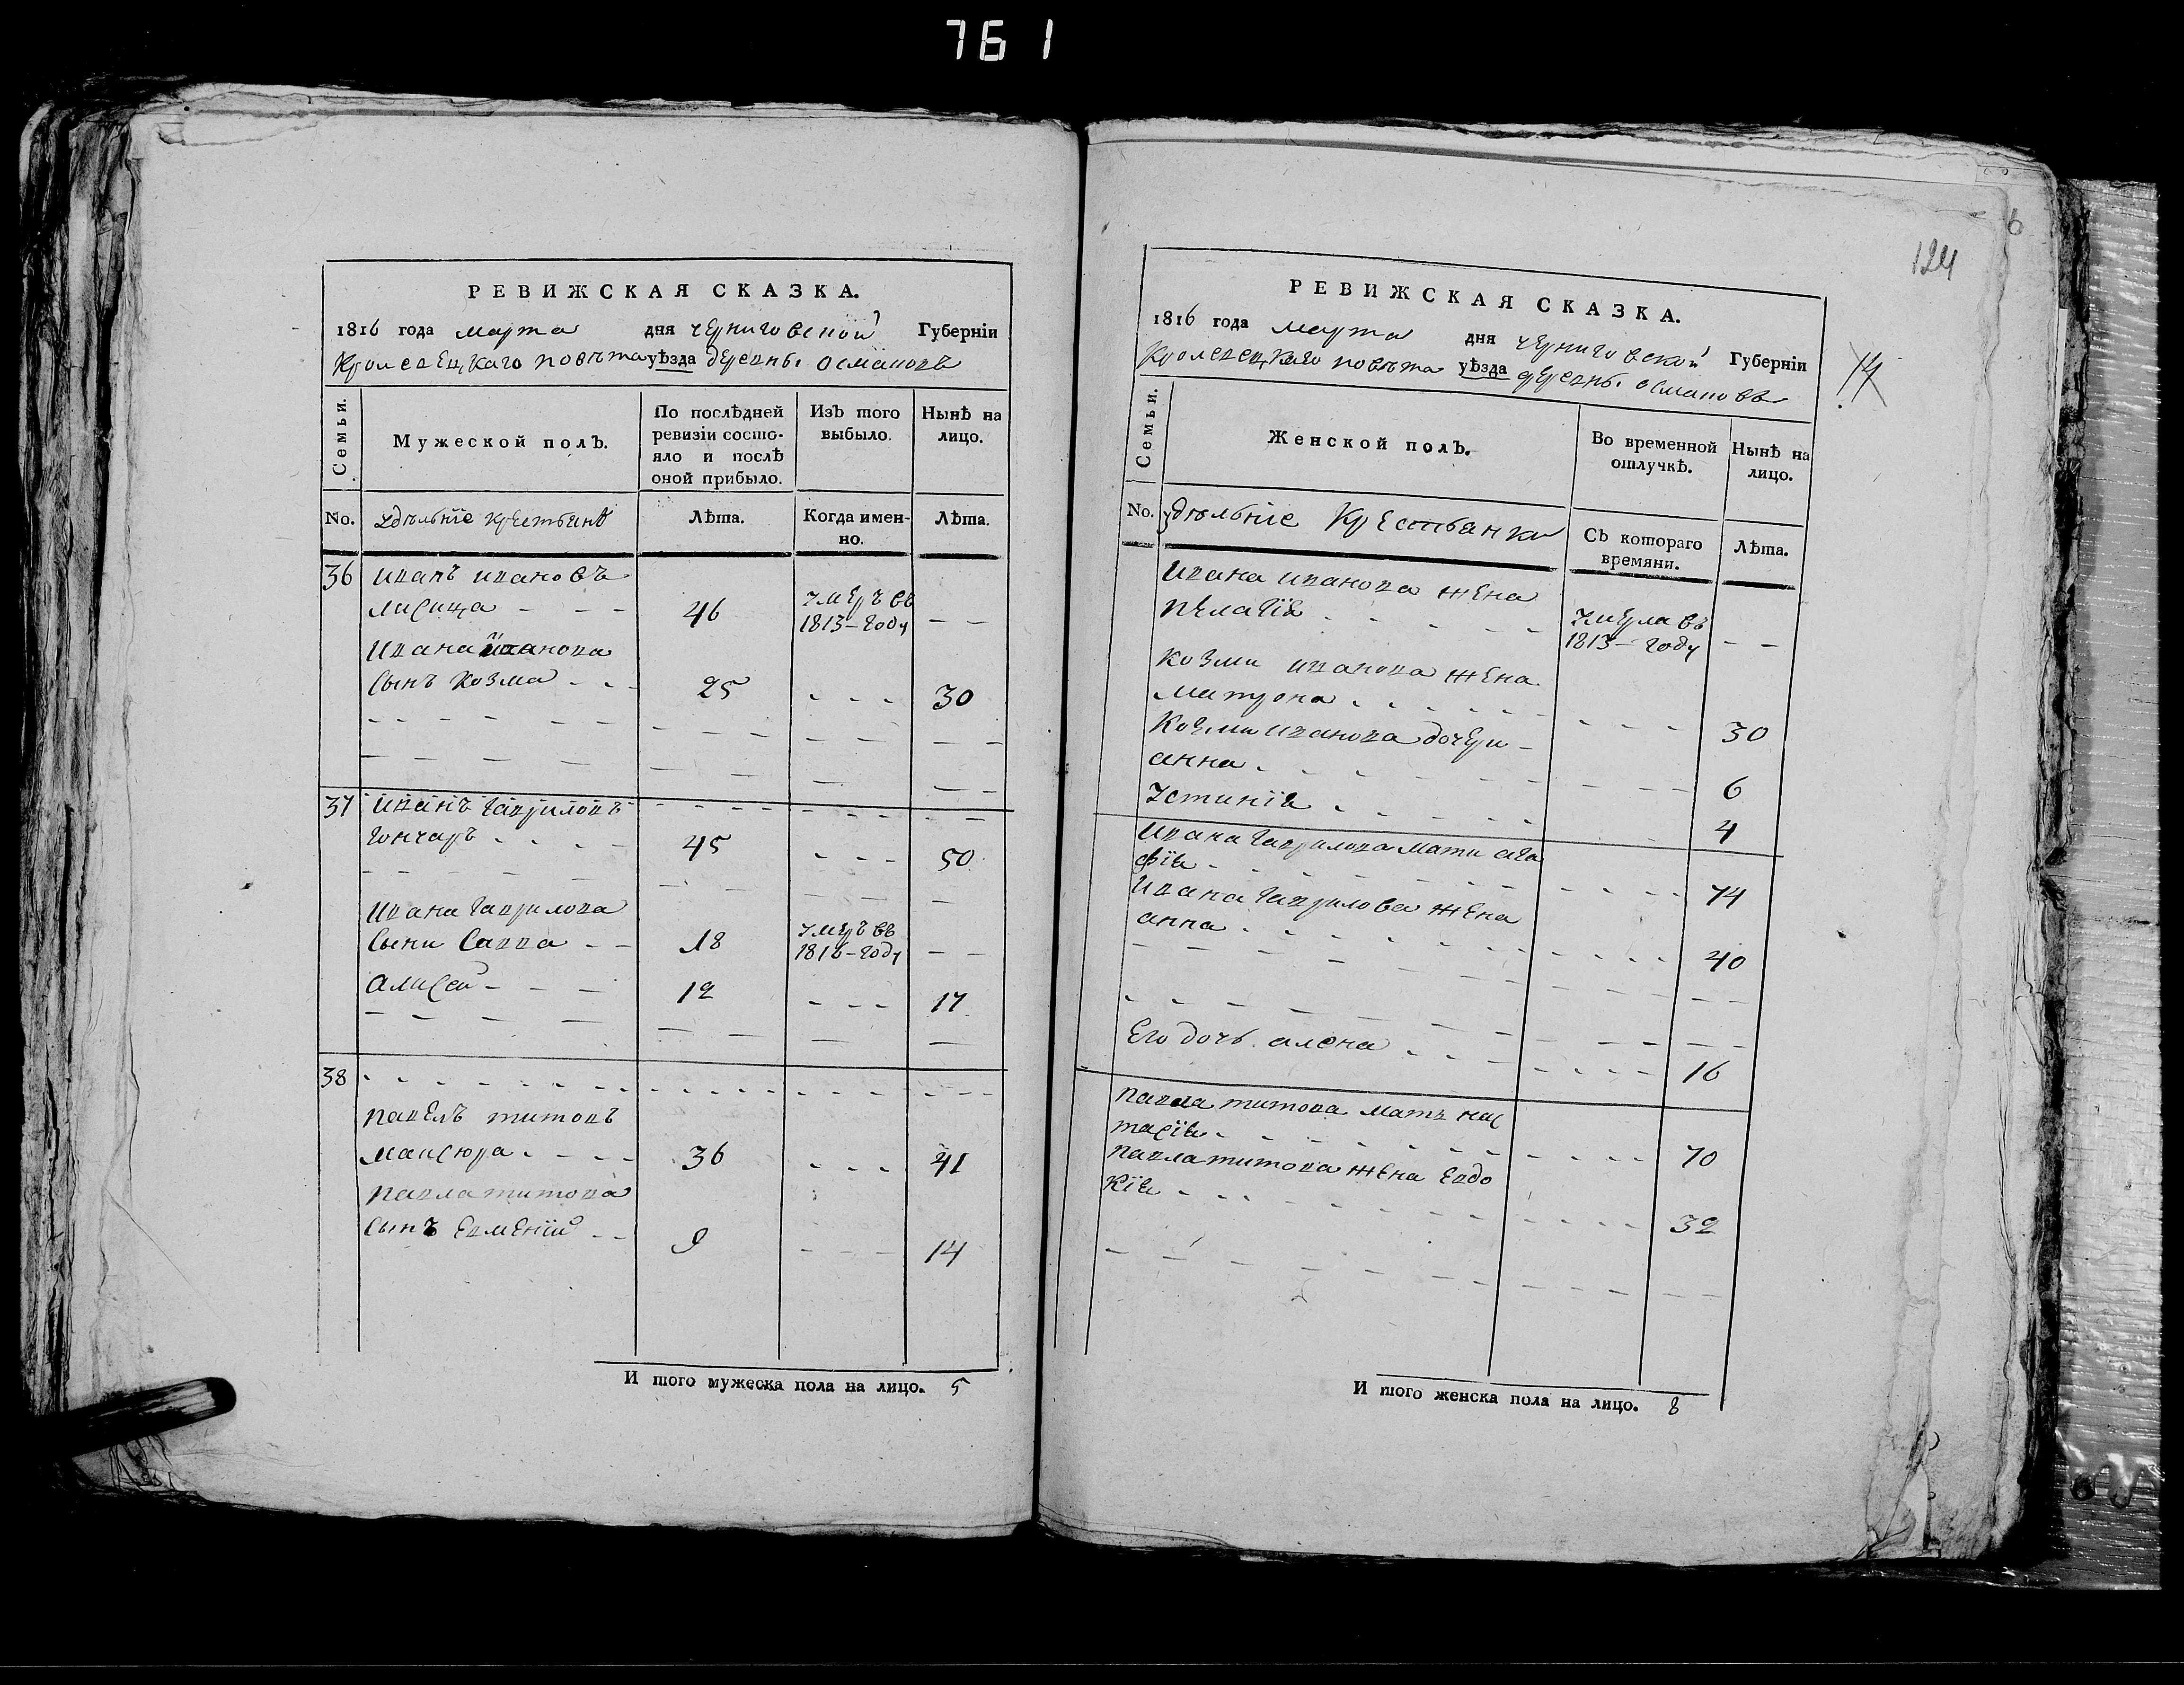 761
РЕВИЖСКАЯ СКАЗКА.
1816 года марта дня черниговской Губерніи
Кролевецкаго повѣта уѣзда деревнѣ османовъ
Семьи.
Мужеской полъ.
По послѣдней ревизіи состояло и послѣ оной прибыло.
Изъ того выбыло.
Нынѣ на лицо.
No. удѣльніе крестьянѣ Лѣта. Когда именно. Лѣта.
36 иванъ ивановъ
лисица - - - 46 умеръ въ 1813-году - -
ивана иванова
сынъ козма - - - 25 - - - 30
37 иванъ гавриловъ
гончаръ - - - - 45 - - - 50
ивана гаврилова
сыни савва - - 18 умеръ въ 1816-году - -
алисей - - - 12 - - - 17
38
павелъ титовъ
мансюра - - - - 36 - - - 41
павла титова
сынъ евменій - - 9 - - - 14
И того мужеска пола на лицо. 5
6
124
14
РЕВИЖСКАЯ СКАЗКА.
1816 года марта дня черниговской Губерніи
Кролевецкаго повѣта уѣзда деревнѣ османовъ
Семьи.
Женской полъ.
Во временной отлучкѣ.
Нынѣ на лицо.
No. удѣльніе крестьянки Съ котораго времяни. Лѣта.
ивана иванова жена
пелагія - - - - - умерла въ 1813-году - -
козми иванова жена
матрона - - - - - 30
козми иванова дочери -
анна - - - - - 6
устинія - - - - - 4
ивана гаврилова мати ага
фія - - - - - 74
ивана гаврилова жена
анна - - - - - 40
его дочь алена - - - - 16
павла титова мать нас
тасія - - - - - 70
павла титова жена евдо
кія - - - - - 32
И того женска пола на лицо. 8